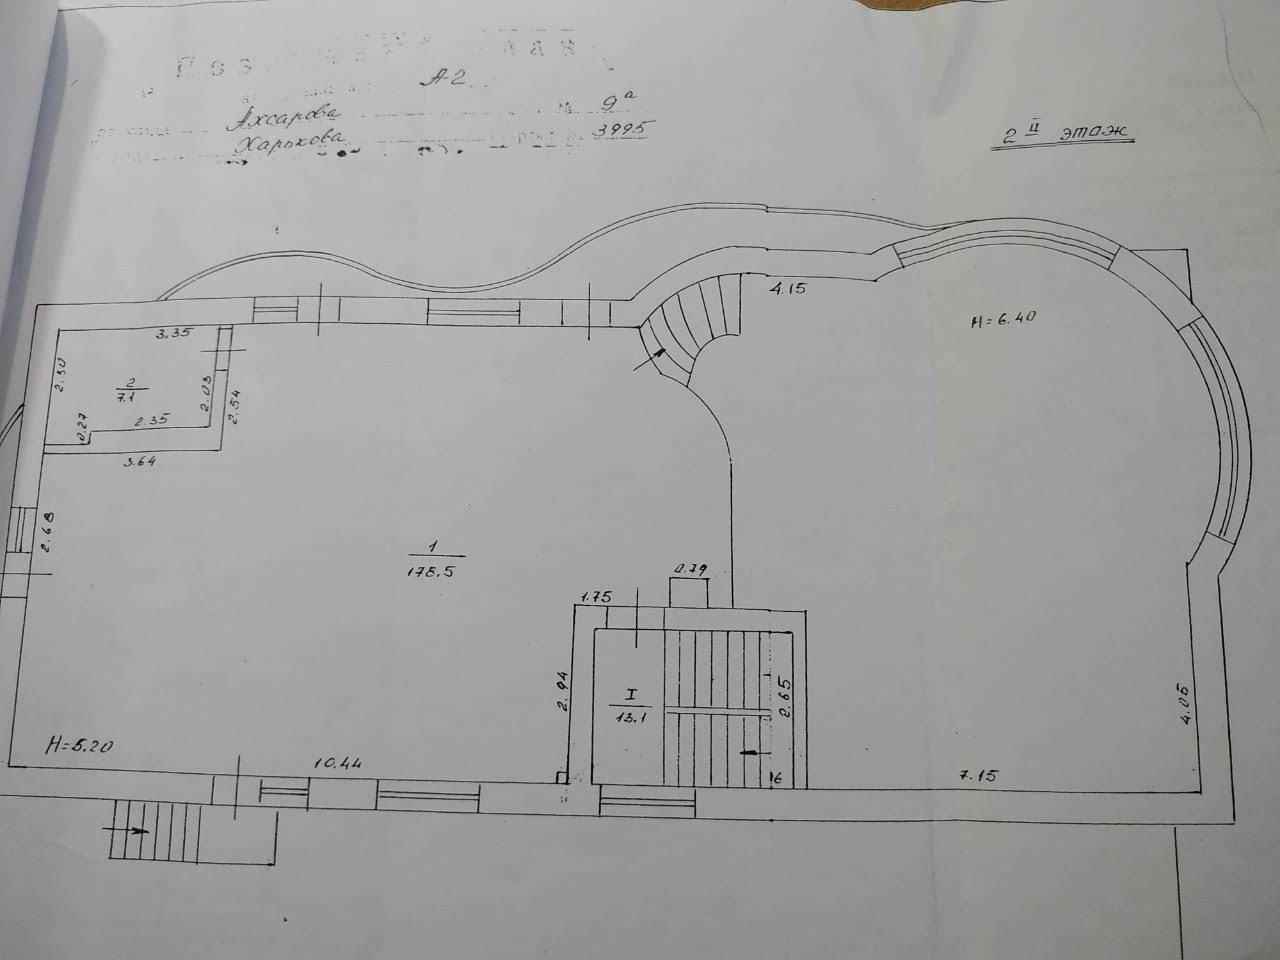 А-2
Ахсарова № 9а
Харькова 3995
2й этаж
4.15
H=6.40
3.35
2.30
2
7.1
2.03
2.54
0.27
2.35
3.64
2.68
1
178.5
0.79
1.75
2.94
I
13.1
2.65
4.05
H=5.20
10.44
6
7.15